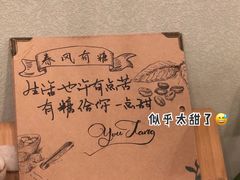 春风有糖
生活也许有点苦
有糖给你一点甜
You Tang
似乎太甜了😅